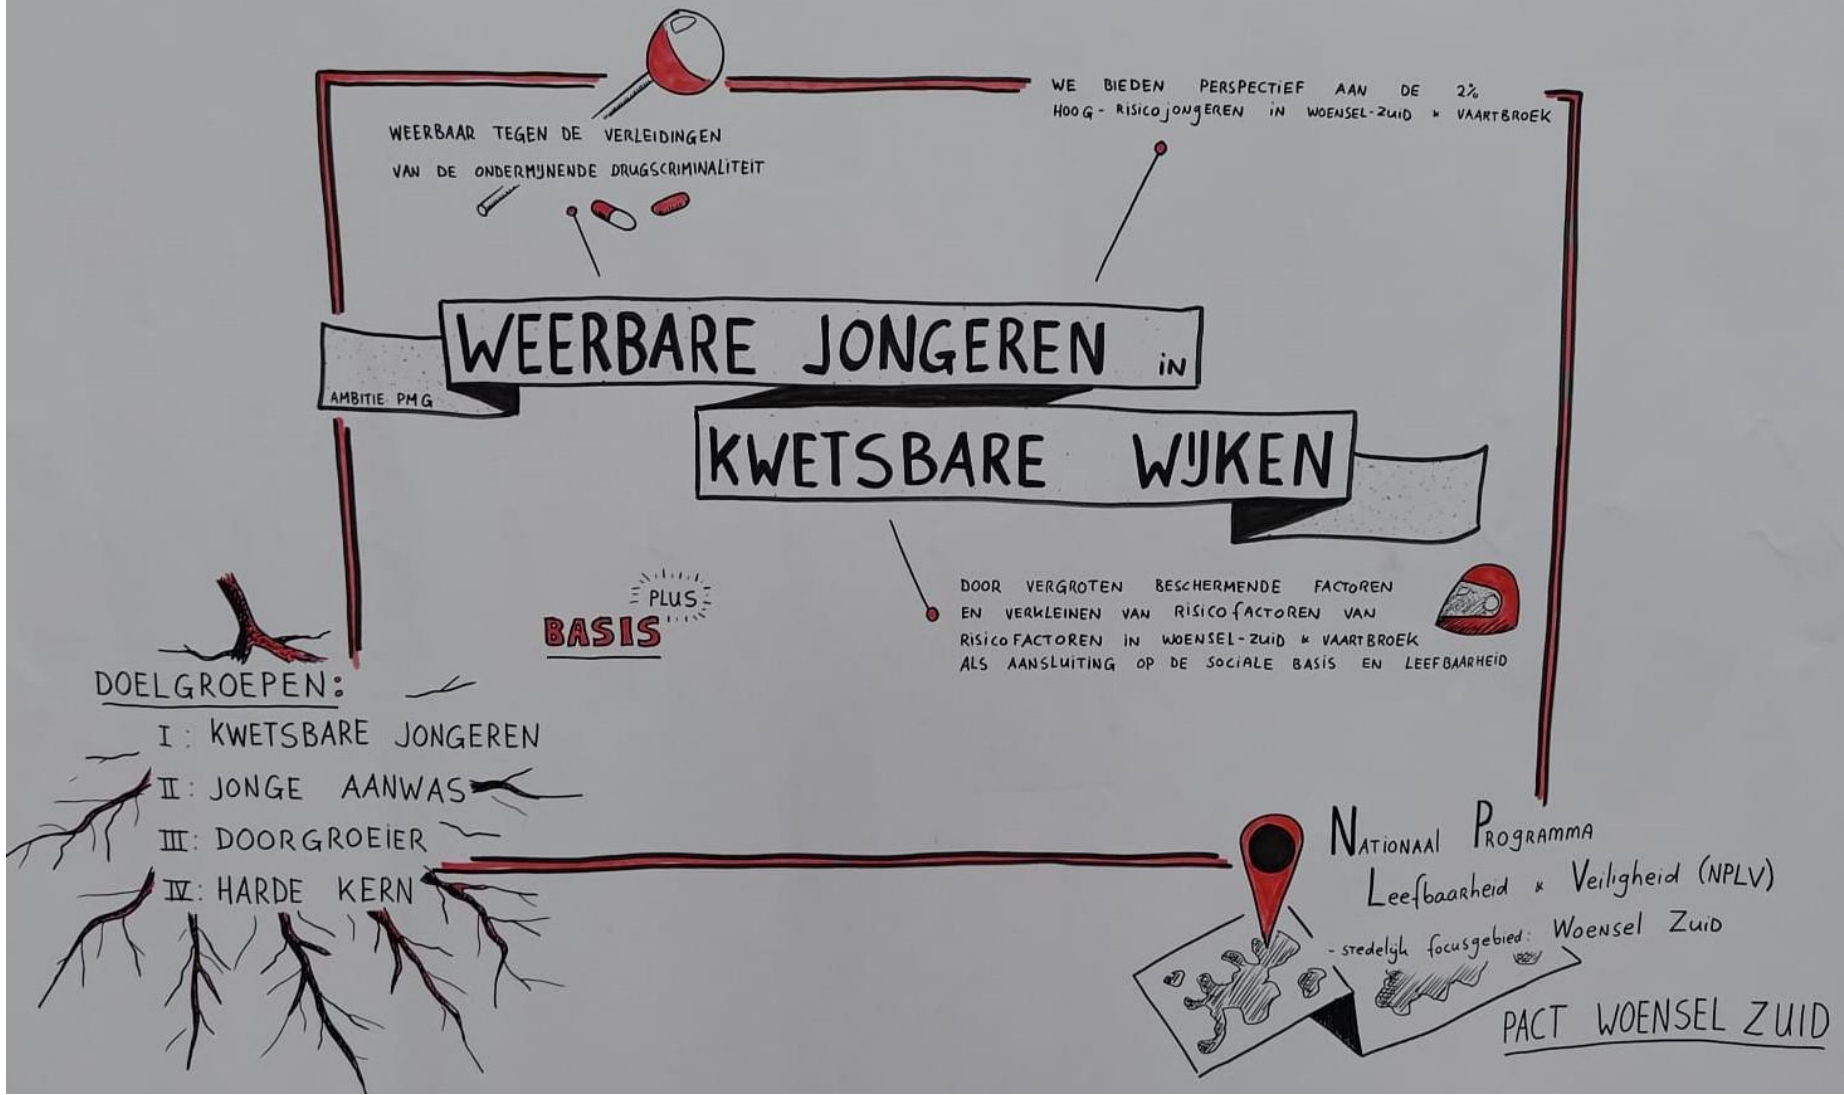 WEERBAAR TEGEN DE VERLEIDINGEN
VAN DE ONDERMIJNENDE DRUGSCRIMINALITEIT
WE BIEDEN PERSPECTIEF AAN DE 2%
HOOG-RISICOJONGEREN IN WOENSEL-ZUID & VAARTBROEK
WEERBARE JONGEREN IN
AMBITIE PMG
KWETSBARE WIJKEN
PLUS
BASIS
DOOR VERGROTEN BESCHERMENDE FACTOREN
EN VERKLEINEN VAN RISICOFACTOREN VAN
RISICOFACTOREN IN WOENSEL-ZUID & VAARTBROEK
ALS AANSLUITING OP DE SOCIALE BASIS EN LEEFBAARHEID
DOELGROEPEN:
I: KWETSBARE JONGEREN
II: JONGE AANWAS
III: DOORGROEIER
IV: HARDE KERN
NATIONAAL PROGRAMMA
Leefbaarheid & Veiligheid (NPLV)
- stedelijk focusgebied: Woensel Zuid
PACT WOENSEL ZUID